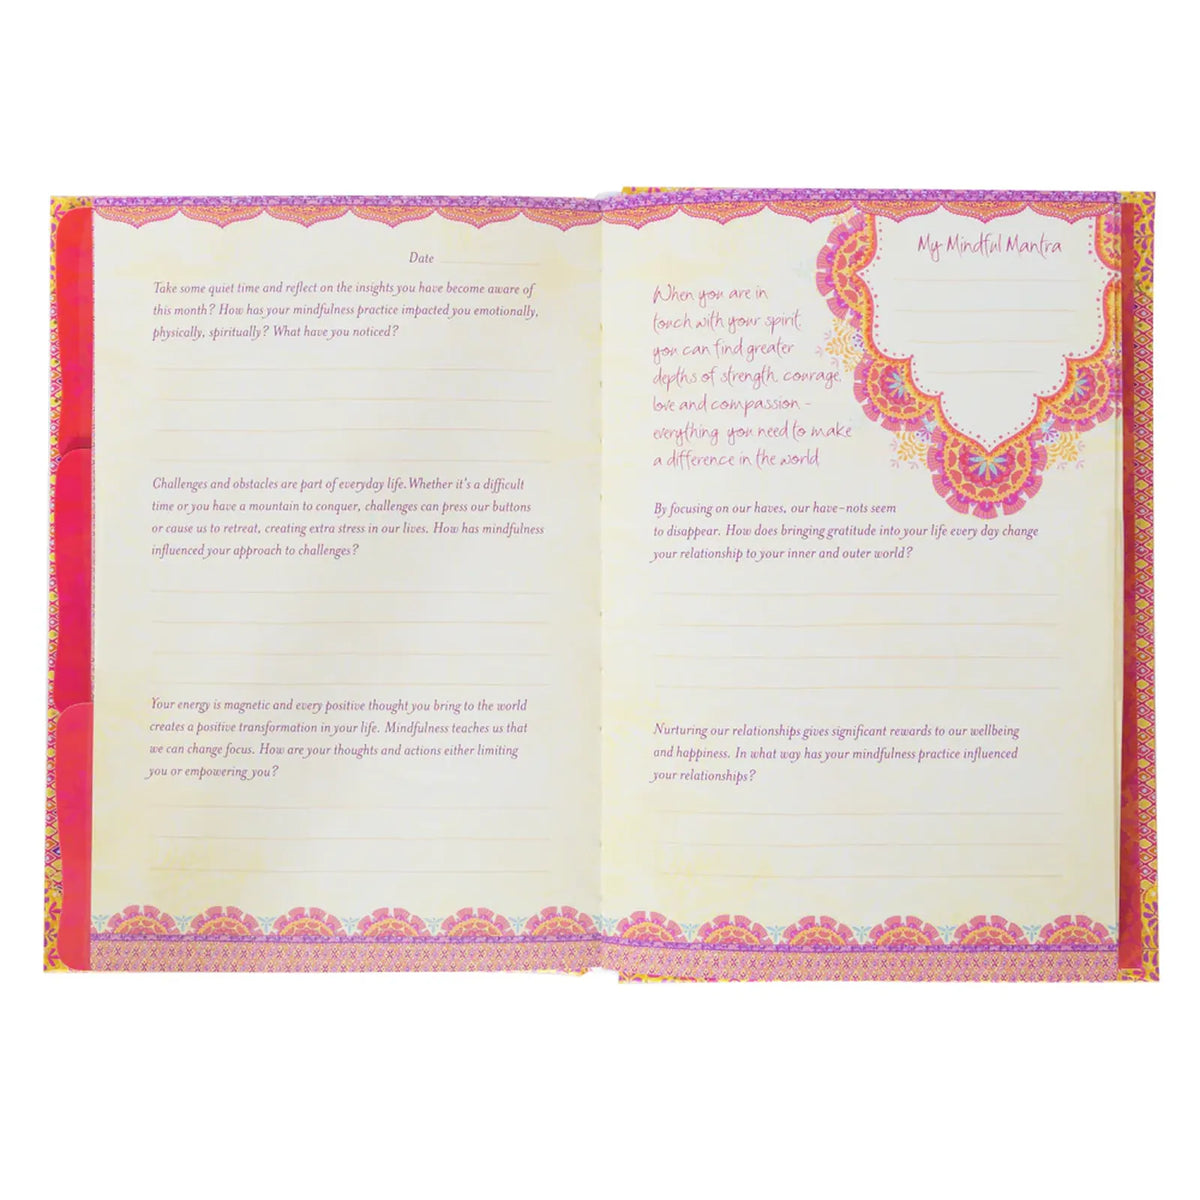 Date
Take some quiet time and reflect on the insights you have become aware of
this month? How has your mindfulness practice impacted you emotionally,
physically, spiritually? What have you noticed?
Challenges and obstacles are part of everyday life. Whether it's a difficult
time or you have a mountain to conquer, challenges can press our buttons
or cause us to retreat, creating extra stress in our lives. How has mindfulness
influenced your approach to challenges?
Your energy is magnetic and every positive thought you bring to the world
creates a positive transformation in your life. Mindfulness teaches us that
we can change focus. How are your thoughts and actions either limiting
you or empowering you?
My Mindful Mantra
When you are in
touch with your spirit,
you can find greater
depths of strength, courage,
love and compassion -
everything you need to make
a difference in the world
By focusing on our haves, our have-nots seem
to disappear. How does bringing gratitude into your life every day change
your relationship to your inner and outer world?
Nurturing our relationships gives significant rewards to our wellbeing
and happiness. In what way has your mindfulness practice influenced
your relationships?